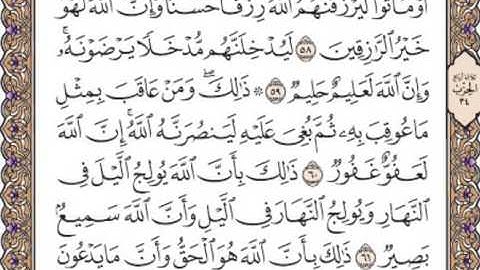 أَوْ مَاتُوا۟ لَيَرْزُقَنَّهُمُ ٱللَّهُ رِزْقًا حَسَنًا وَإِنَّ ٱللَّهَ لَهُوَ
خَيْرُ ٱلرَّٰزِقِينَ ٥٨ لَيُدْخِلَنَّهُم مُّدْخَلًا يَرْضَوْنَهُۥ
وَإِنَّ ٱللَّهَ لَعَلِيمٌ حَلِيمٌ ٥٩ ۞ ذَٰلِكَ ۖ وَمَنْ عَاقَبَ بِمِثْلِ
مَا عُوقِبَ بِهِۦ ثُمَّ بُغِىَ عَلَيْهِ لَيَنصُرَنَّهُ ٱللَّهُ ۗ إِنَّ ٱللَّهَ
لَعَفُوٌّ غَفُورٌ ٦٠ ذَٰلِكَ بِأَنَّ ٱللَّهَ يُولِجُ ٱلَّيْلَ فِى
ٱلنَّهَارِ وَيُولِجُ ٱلنَّهَارَ فِى ٱلَّيْلِ وَأَنَّ ٱللَّهَ سَمِيعٌۢ
بَصِيرٌ ٦١ ذَٰلِكَ بِأَنَّ ٱللَّهَ هُوَ ٱلْحَقُّ وَأَنَّ مَا يَدْعُونَ
الحزب
٣٤